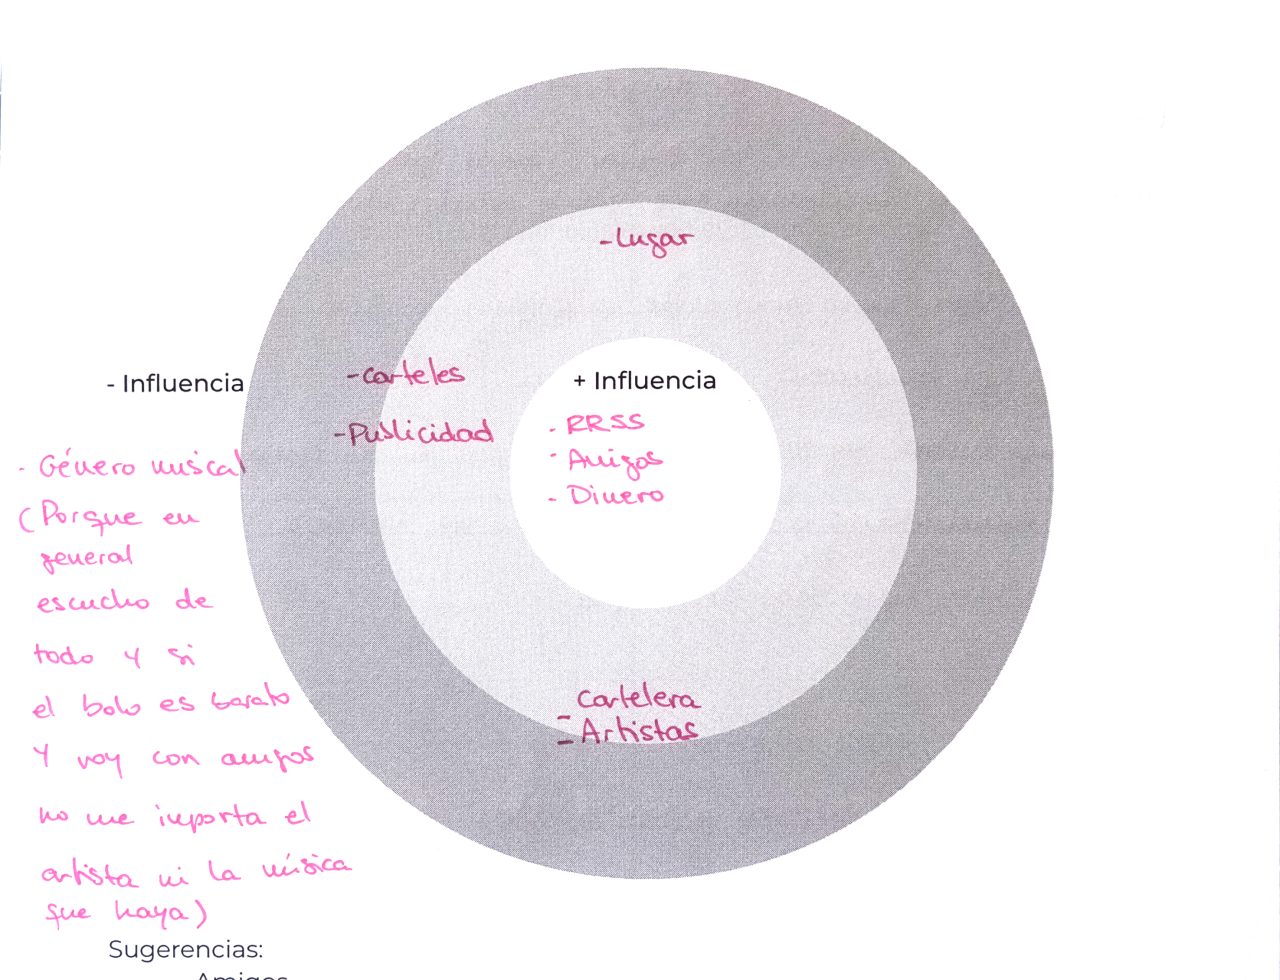 - Lugar
- Influencia
- Carteles
+ Influencia
- Publicidad
- RRSS
- Amigos
- Dinero
- Género musical
(Porque en
general
escucho de
todo y si
el bolo es barato
y voy con amigos
no me importa el
artista ni la música
que haya)
- Cartelera
- Artistas
Sugerencias:
Amigos